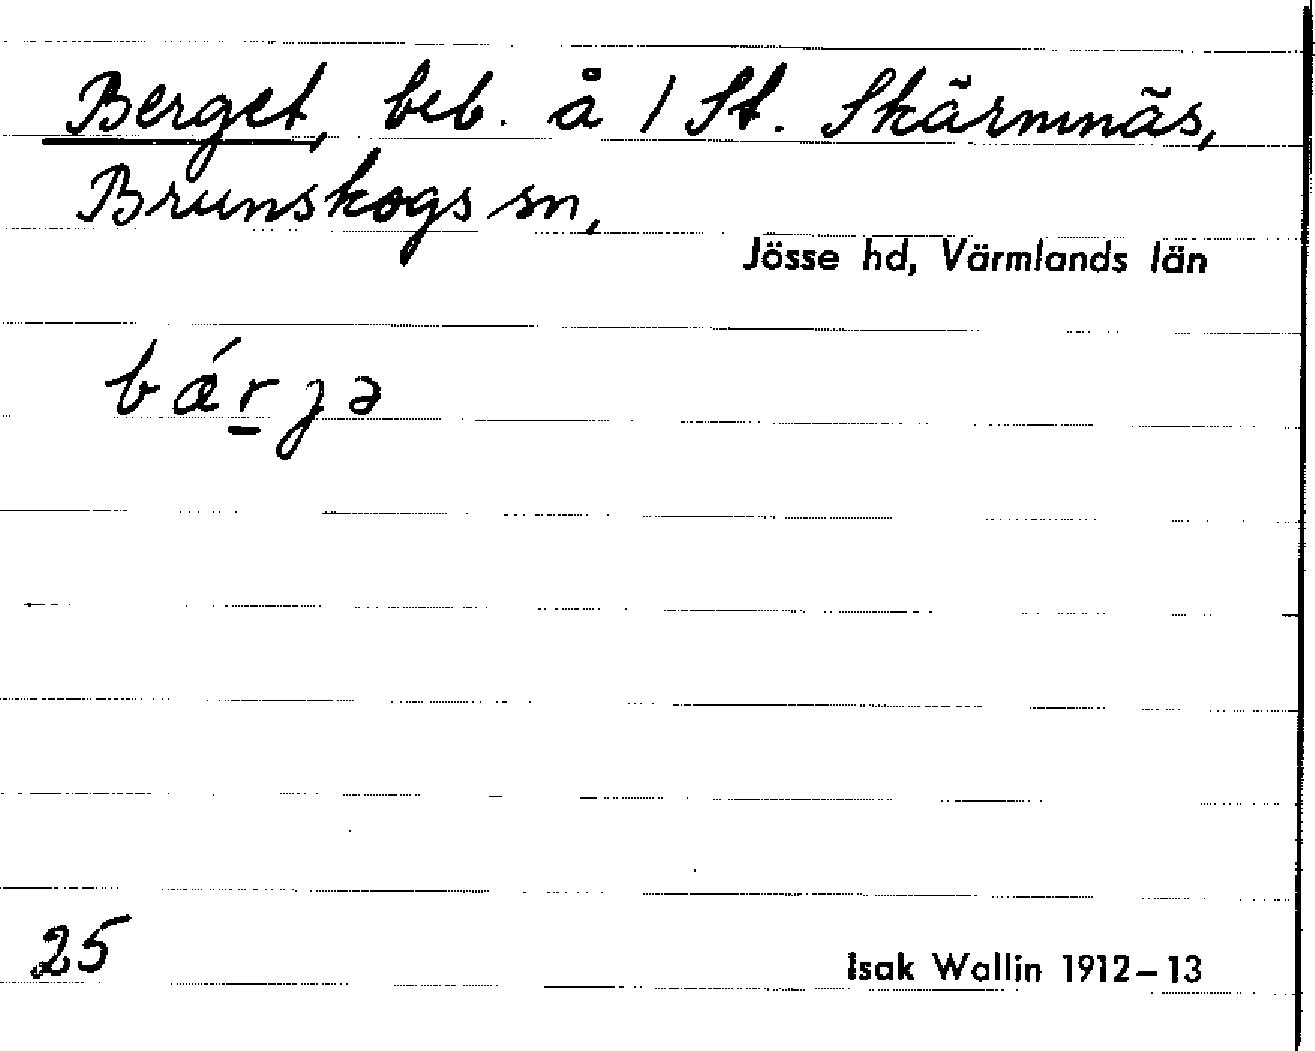 Berget, beb. å 1 St. Skärmnäs,
Brunskogs sn,
Jösse hd, Värmlands län
bǽr̠jə
25
Isak Wallin 1912–13